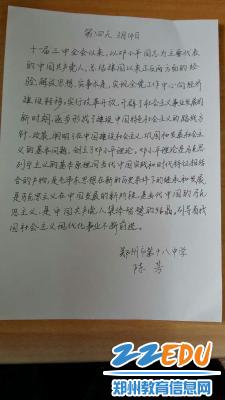 第四天 3月14日
十一届三中全会以来，以邓小平同志为主要代表
的中国共产党人，总结建国以来正反两方面的经
验，解放思想，实事求是，实现全党工作中心向经济
建设转移，实行改革开放，开辟了社会主义事业发展的
新时期，逐步形成了建设中国特色社会主义的路线方
针、政策，阐明了在中国建设社会主义、巩固和发展社会主
义的基本问题，创立了邓小平理论。邓小平理论是马克思
列宁主义的基本原理同当代中国实践和时代特征相结
合的产物，是毛泽东思想在新的历史条件下的继承和发展，
是马克思主义在中国发展的新阶段，是当代中国的马克
思主义，是中国共产党人集体智慧的结晶，引导着我
国社会主义现代化事业不断前进。
郑州市第十八中学
陈芳
22EDU
郑州教育信息网